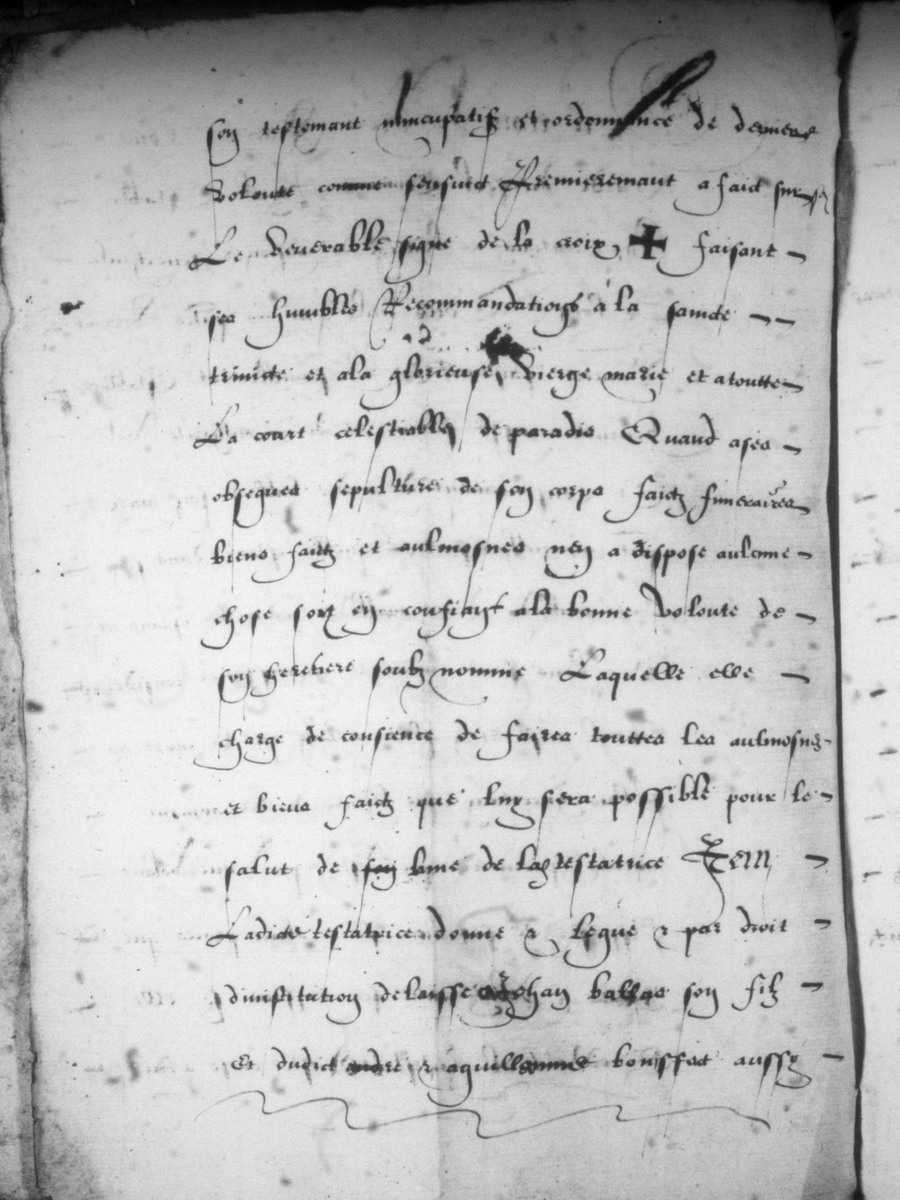 son testemant nuncupatif et ordonnance de derniere
volonte comme sensuict Premieremant a faict sur
Le venerable signe de la croix ✠ faisant
ses humbles Recommandations a la saincte
trinicte et a la glorieuse vierge marie et a toutte
La court celestialle de paradis Quand a ses
obseques sepulture de son corps faictz funeraires
biens faictz et aulmosnes nen a dispose aulcune
chose soy en confiant a la bonne volonte de
son heretiere soubz nomme Laquelle elle
charge de consience de faires touttes les aulmosnes
et biens faictz que luy sera possible pour le
salut de lame de lad testatrice Item
Ladicte testatrice donne & legue & par droit
dinstitution delaisse a Jehan ballas son filz
Et dudict andre & aguillonne bouffet aussy